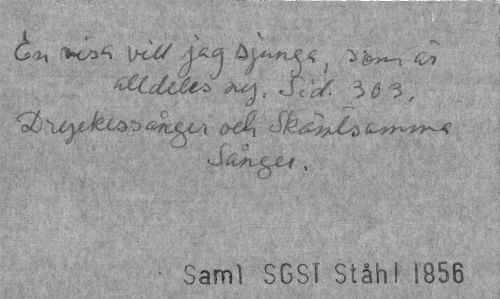 En visa vill jag sjunga, som är
alldeles ny. Sid. 303.
Dryckessånger och Skämtsamma
Sånger.
Saml SGST Ståhl 1856